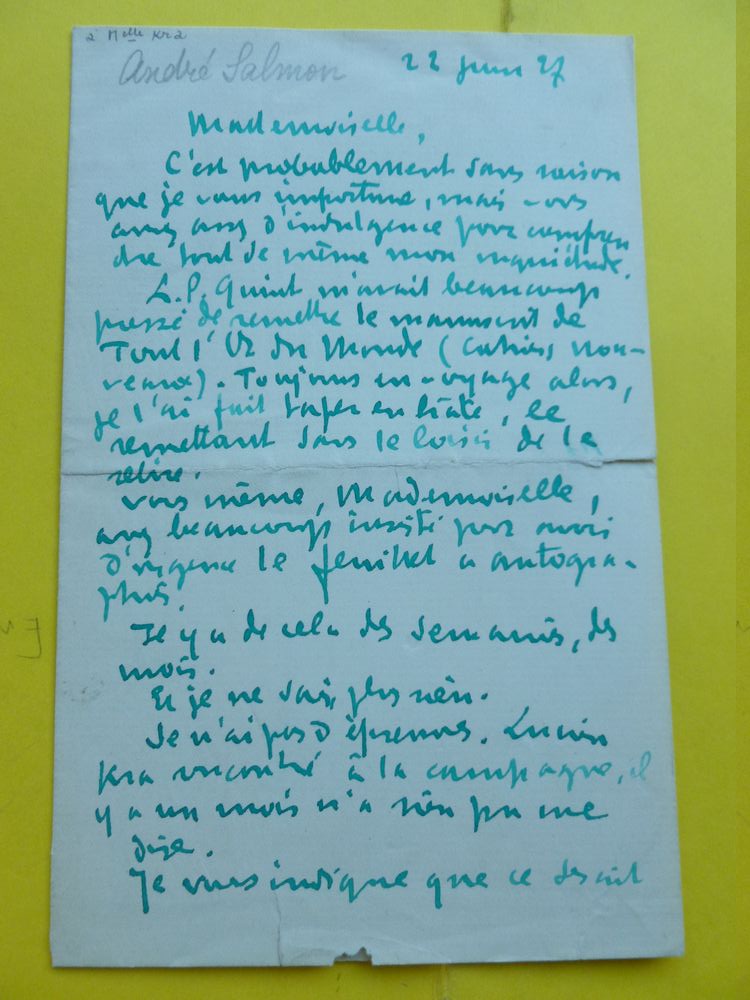 à Melle Kra
André Salmon
22 juin 27
Mademoiselle,
C'est probablement sans raison
que je vous importune, mais vous
avez assez d'indulgence pour compren
dre tout de même mon inquiétude.
L.P. Quint m'avait beaucoup
pressé de remettre le manuscrit de
Tout l'Or du Monde (Cahiers nou-
veaux). Toujours en voyage alors,
je l'ai fait taper en hâte, le
remettant sans le loisir de le
relire.
Vous même, Mademoiselle,
avez beaucoup insisté pour avoir
d'urgence le feuillet a autogra-
phier.
Il y a de cela des semaines, des
mois.
Et je ne sais plus rien.
Je n'ai pas d'épreuves. Lucien
Kra rencontré à la campagne, il
y a un mois n'a rien pu me
dire.
Je vous indique que ce serait